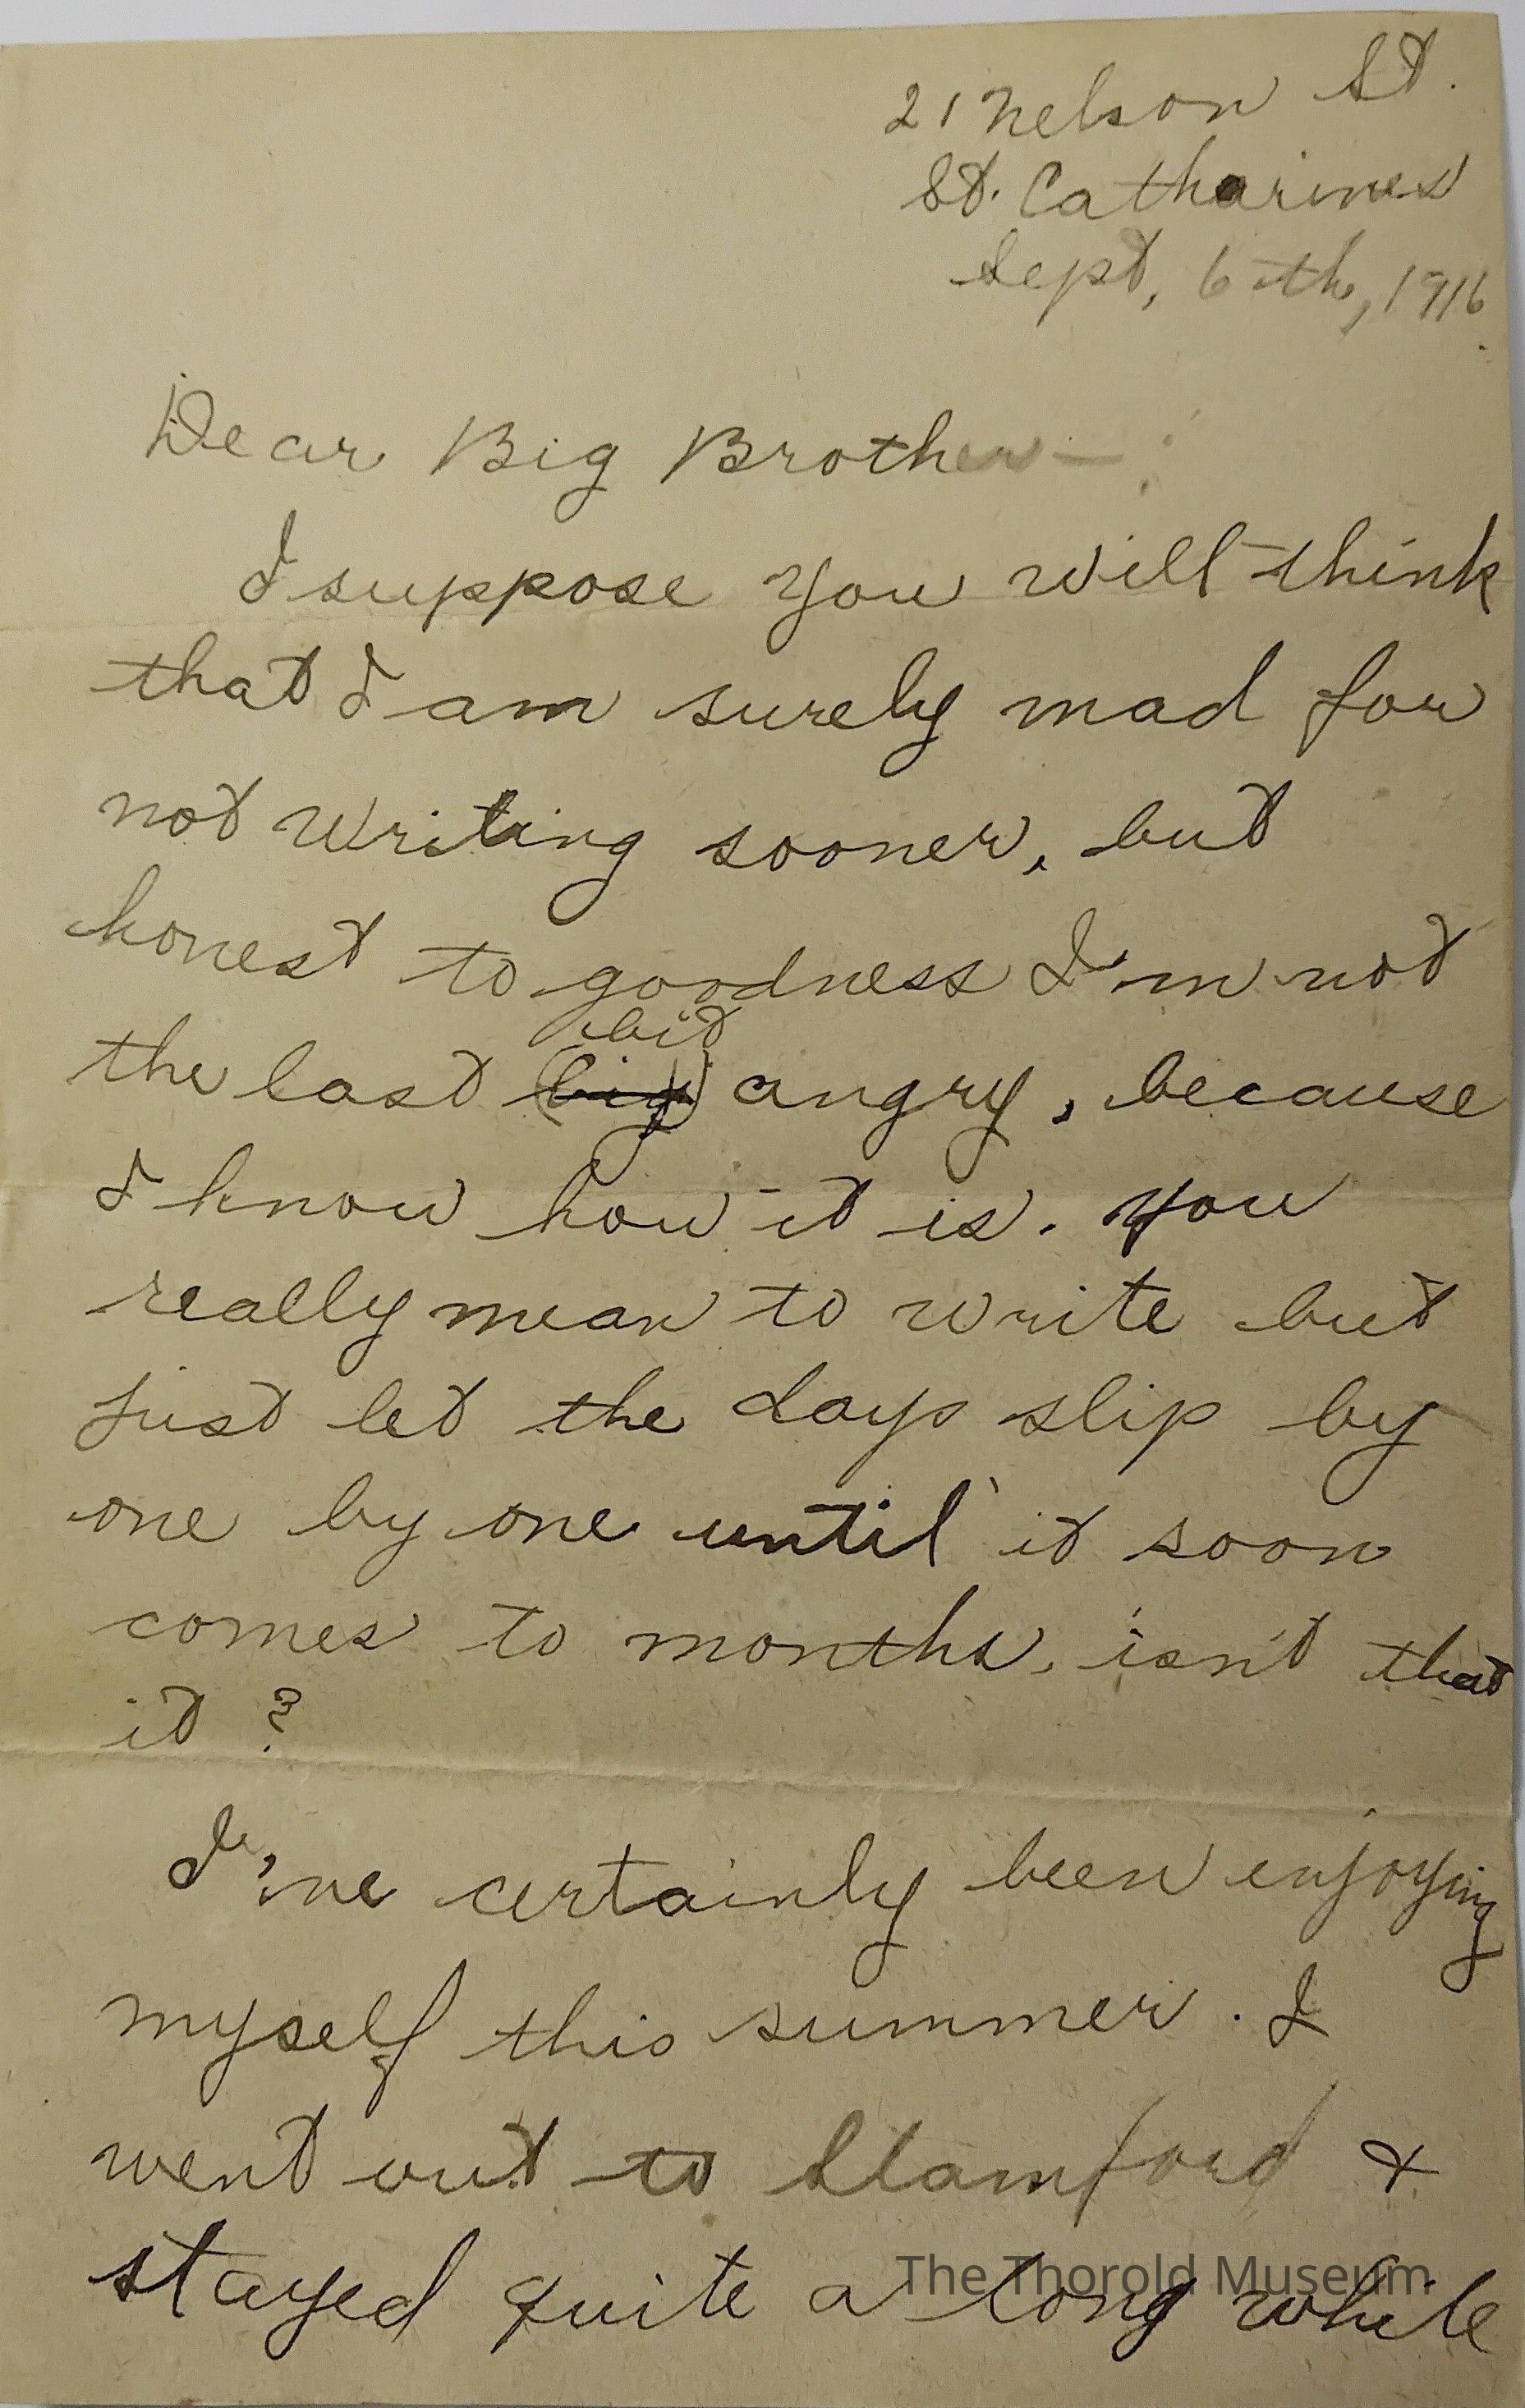 21 Nelson St.
St. Catharines
Sept, 6th, 1916.
Dear Big Brother—:
I suppose you will think
that I am surely mad for
not writing sooner, but
honest to goodness I'm not
bit
the last (big) angry, because
I know how it is. You
really mean to write but
just let the days slip by
one by one until it soon
comes to months, isn't that
it?
I've certainly been enjoying
myself this summer. I
went out to Stamford &
stayed quite a long while
The Thorold Museum